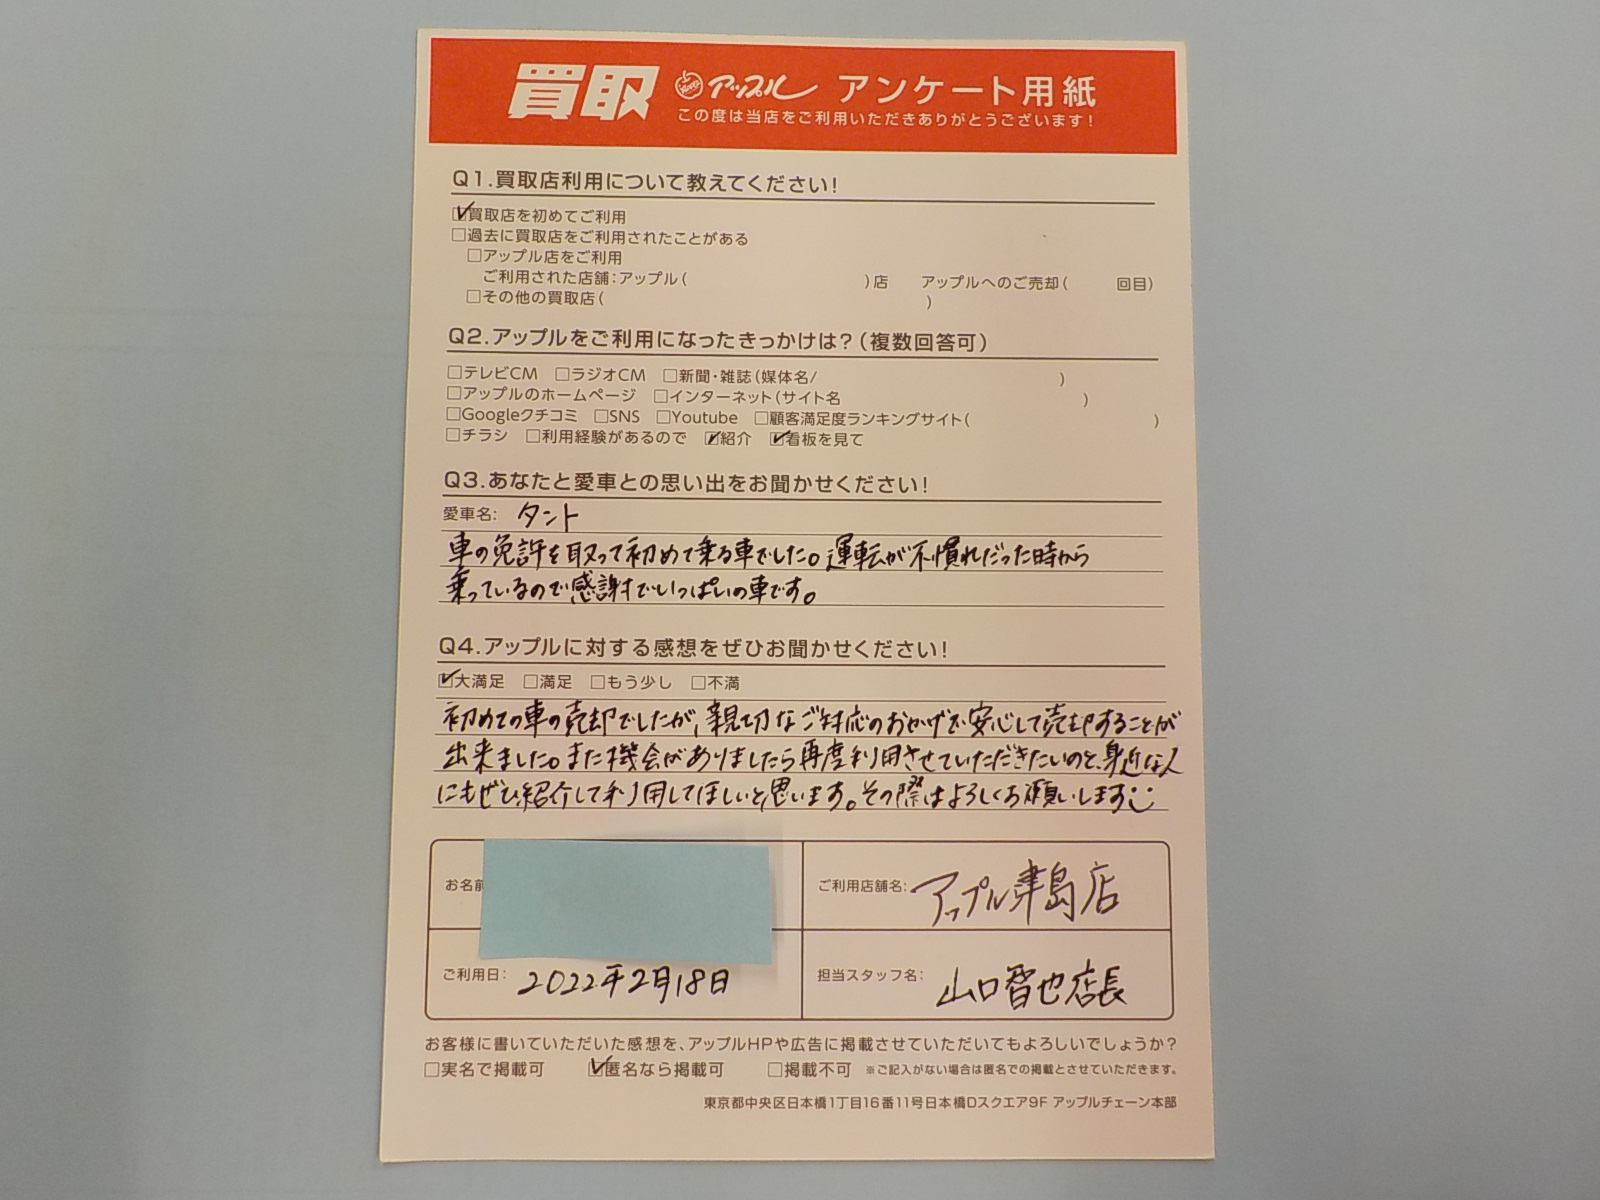 買取 アップル アンケート用紙
この度は当店をご利用いただきありがとうございます！
Q1.買取店利用について教えてください！
☑買取店を初めてご利用
□過去に買取店をご利用されたことがある
□アップル店をご利用
ご利用された店舗：アップル（ ）店 アップルへのご売却（ 回目）
□その他の買取店（ ）
Q2.アップルをご利用になったきっかけは？（複数回答可）
□テレビCM □ラジオCM □新聞・雑誌（媒体名/ ）
□アップルのホームページ □インターネット（サイト名 ）
□Googleクチコミ □SNS □Youtube □顧客満足度ランキングサイト（ ）
□チラシ □利用経験があるので ☑紹介 ☑看板を見て
Q3.あなたと愛車との思い出をお聞かせください！
愛車名： タント
車の免許を取って初めて乗る車でした。運転が不慣れだった時から
乗っているので感謝でいっぱいの車です。
Q4.アップルに対する感想をぜひお聞かせください！
☑大満足 □満足 □もう少し □不満
初めての車の売却でしたが、親切なご対応のおかげで安心して売却することが
出来ました。また機会がありましたら再度利用させていただきたいのと、身近な人
にもぜひ紹介して利用してほしいと思います。その際はよろしくお願いします
お名前 ご利用店舗名： アップル津島店
ご利用日： 2022年2月18日 担当スタッフ名： 山口智也店長
お客様に書いていただいた感想を、アップルHPや広告に掲載させていただいてもよろしいでしょうか？
□実名で掲載可 ☑匿名なら掲載可 □掲載不可 ※ご記入がない場合は匿名での掲載とさせていただきます。
東京都中央区日本橋1丁目16番11号日本橋Dスクエア9F アップルチェーン本部